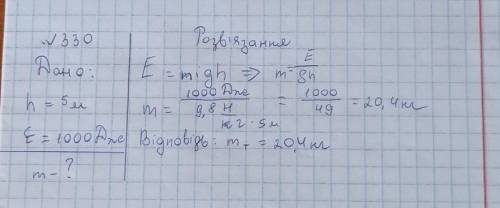 №330
Дано:
h = 5м
E = 1000Дж
m - ?
Розв'язання
E = mgh ⇒ m = E/gh
m = 1000Дж / 9,8 Н/кг · 5м = 1000/49 = 20,4 кг
Відповідь: m = 20,4 кг